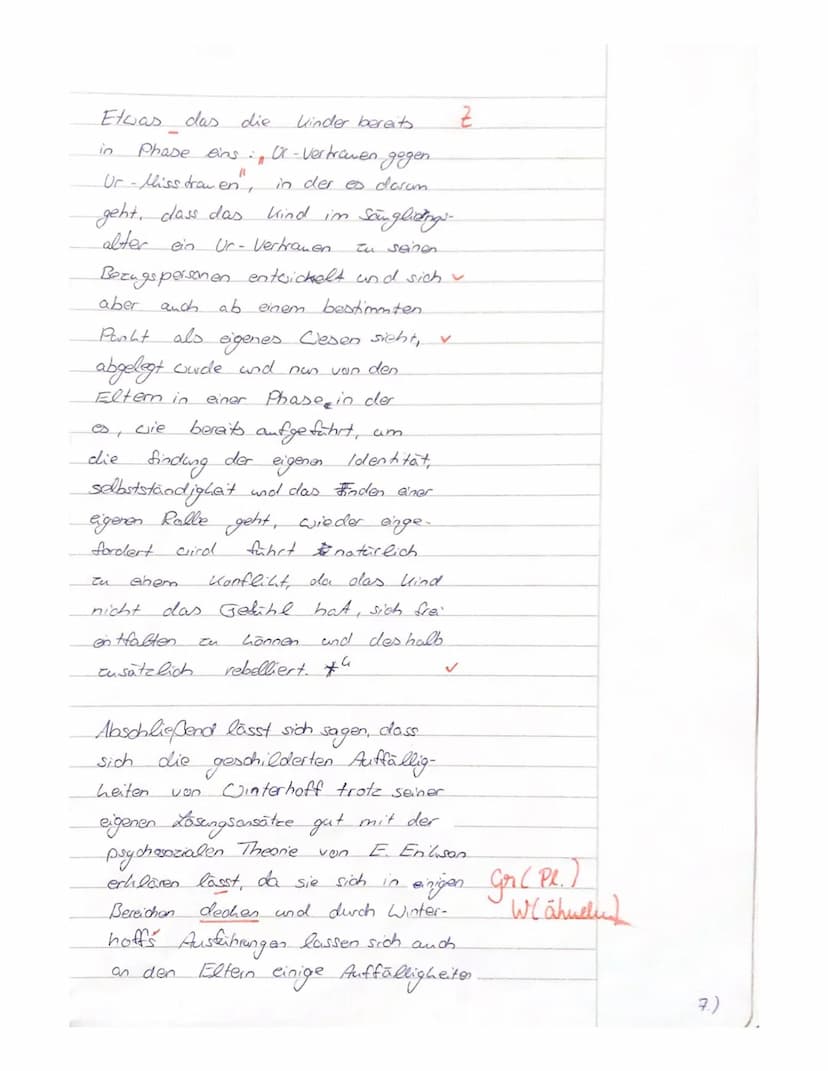 Etwas das die Kinder bereits Z
in Phase eins: „Ur-Vertrauen gegen
Ur-Misstrauen", in der es darum
geht, dass das Kind im Säuglings-
alter ein Ur-Vertrauen zu seinen
Bezugspersonen entwickelt und sich ✓
aber auch ab einem bestimmten
Punkt als eigenes Wesen sieht, ✓
abgelegt wurde und nun von den
Eltern in einer Phase, in der
es, wie bereits aufgeführt, um
die findung der eigenen Identität,
selbstständigkeit und das Finden einer
eigenen Rolle geht, wieder einge-
fordert wird führt natürlich
zu einem Konflikt, da das Kind
nicht das Gefühl hat, sich frei
entfalten zu können und deshalb
zusätzlich rebelliert. *4 ✓
Abschließend lässt sich sagen, dass
sich die geschilderten Auffällig-
keiten von Winterhoff trotz seiner
eigenen Lösungsansätze gut mit der
psychosozialen Theorie von E. Erikson
erklären lässt, da sie sich in einigen Gr(Pl.)
Bereichen decken und durch Winter- W(ähneln)
hoffs Ausführungen lassen sich auch
an den Eltern einige Auffälligkeiten
7.)